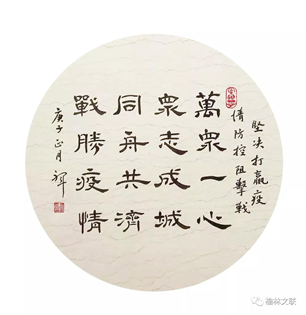 坚决打赢疫
情防控阻擊戰
萬衆一心
衆志成城
同舟共濟
戰勝疫情
庚子正月
榆林文联